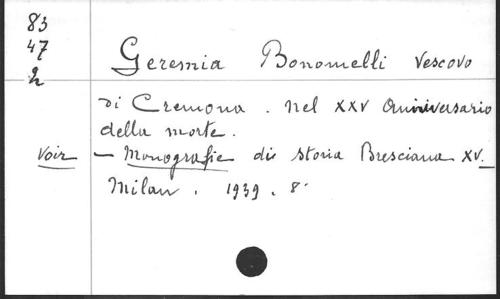 83
47
2
Geremia Bonomelli Vescovo
di Cremona. Nel XXV Anniversario
della morte.
Voir — Monografie di storia Bresciana XV.
Milan. 1939. 8°